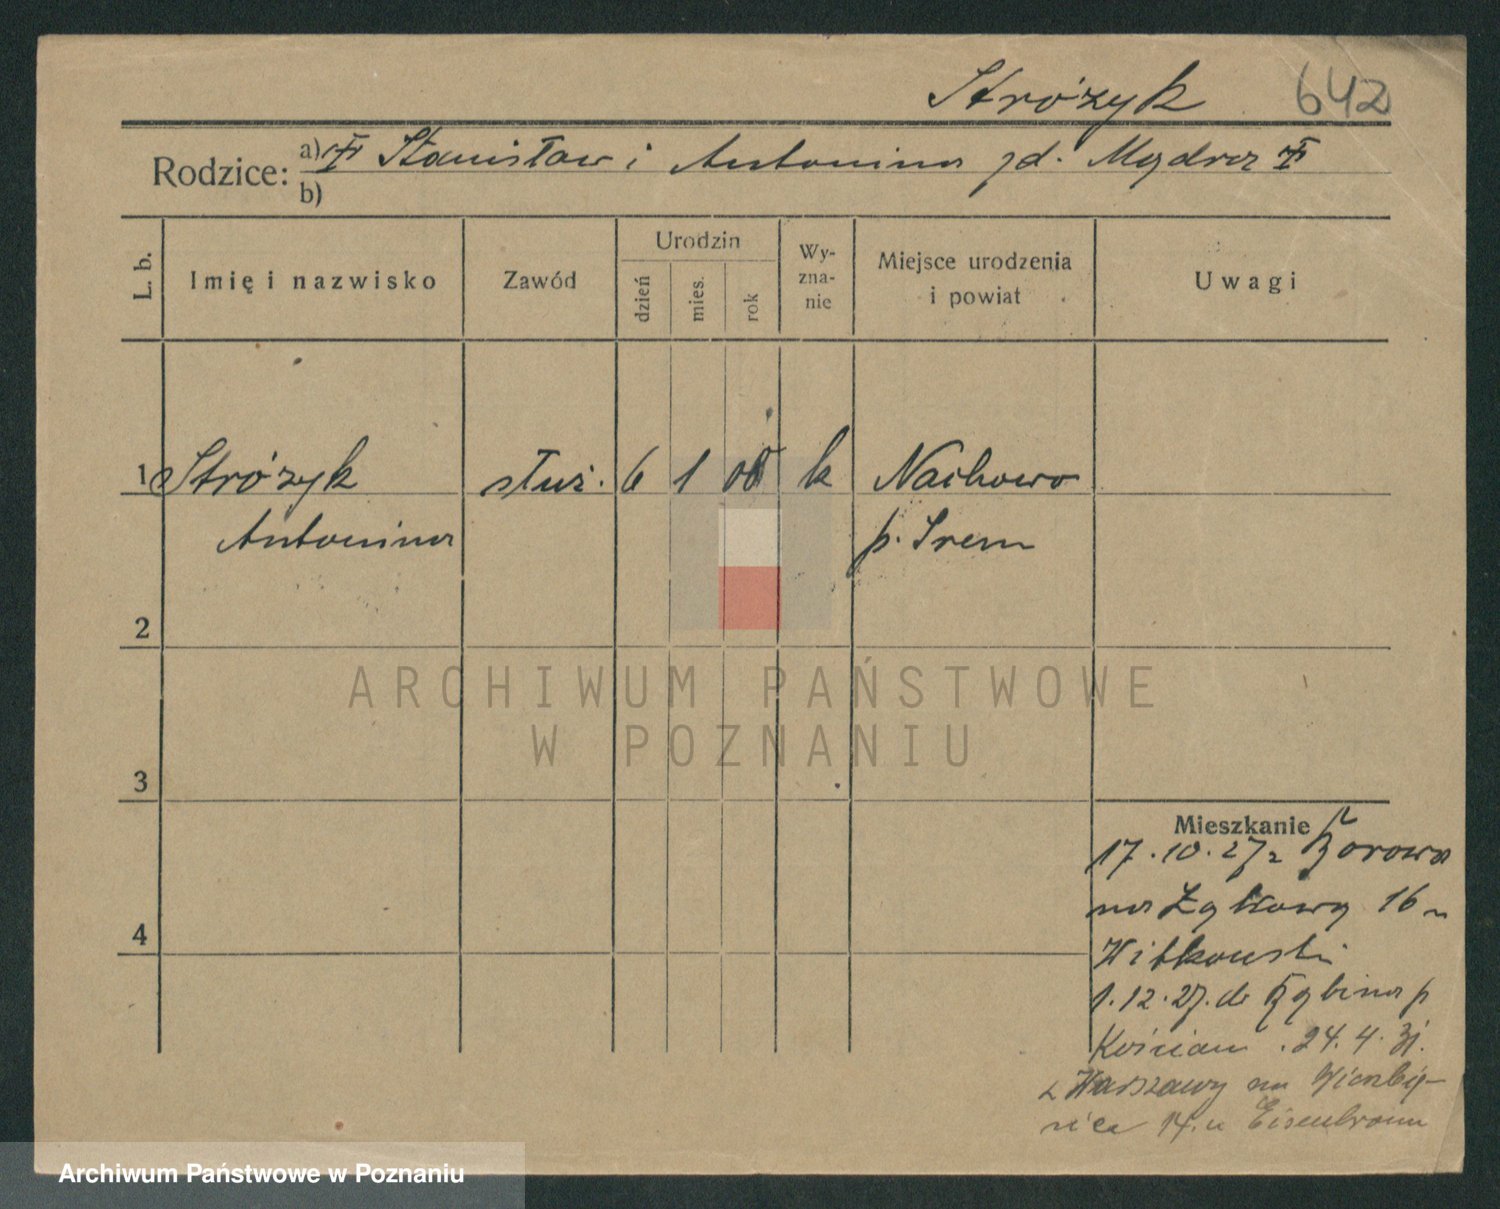 Stróżyk 642
Rodzice: a) Stanisław i Antonina zd. Mądra
b)
L. b. Imię i nazwisko Zawód Urodzin dzień mies. rok Wy-zna-nie Miejsce urodzenia i powiat Uwagi
1 Stróżyk służ. 6 1 08 k Nachowo
Antonina p. Śrem
2
3
4
Mieszkanie
17.10.27 z Borowa
na Łąkową 16 u
Witkowski
1.12.27. do p
Kościan. 24.4.31.
z Warszawy na Wierzbię-
cice 14. u Eisenbraun
ARCHIWUM PAŃSTWOWE
W POZNANIU
Archiwum Państwowe w Poznaniu